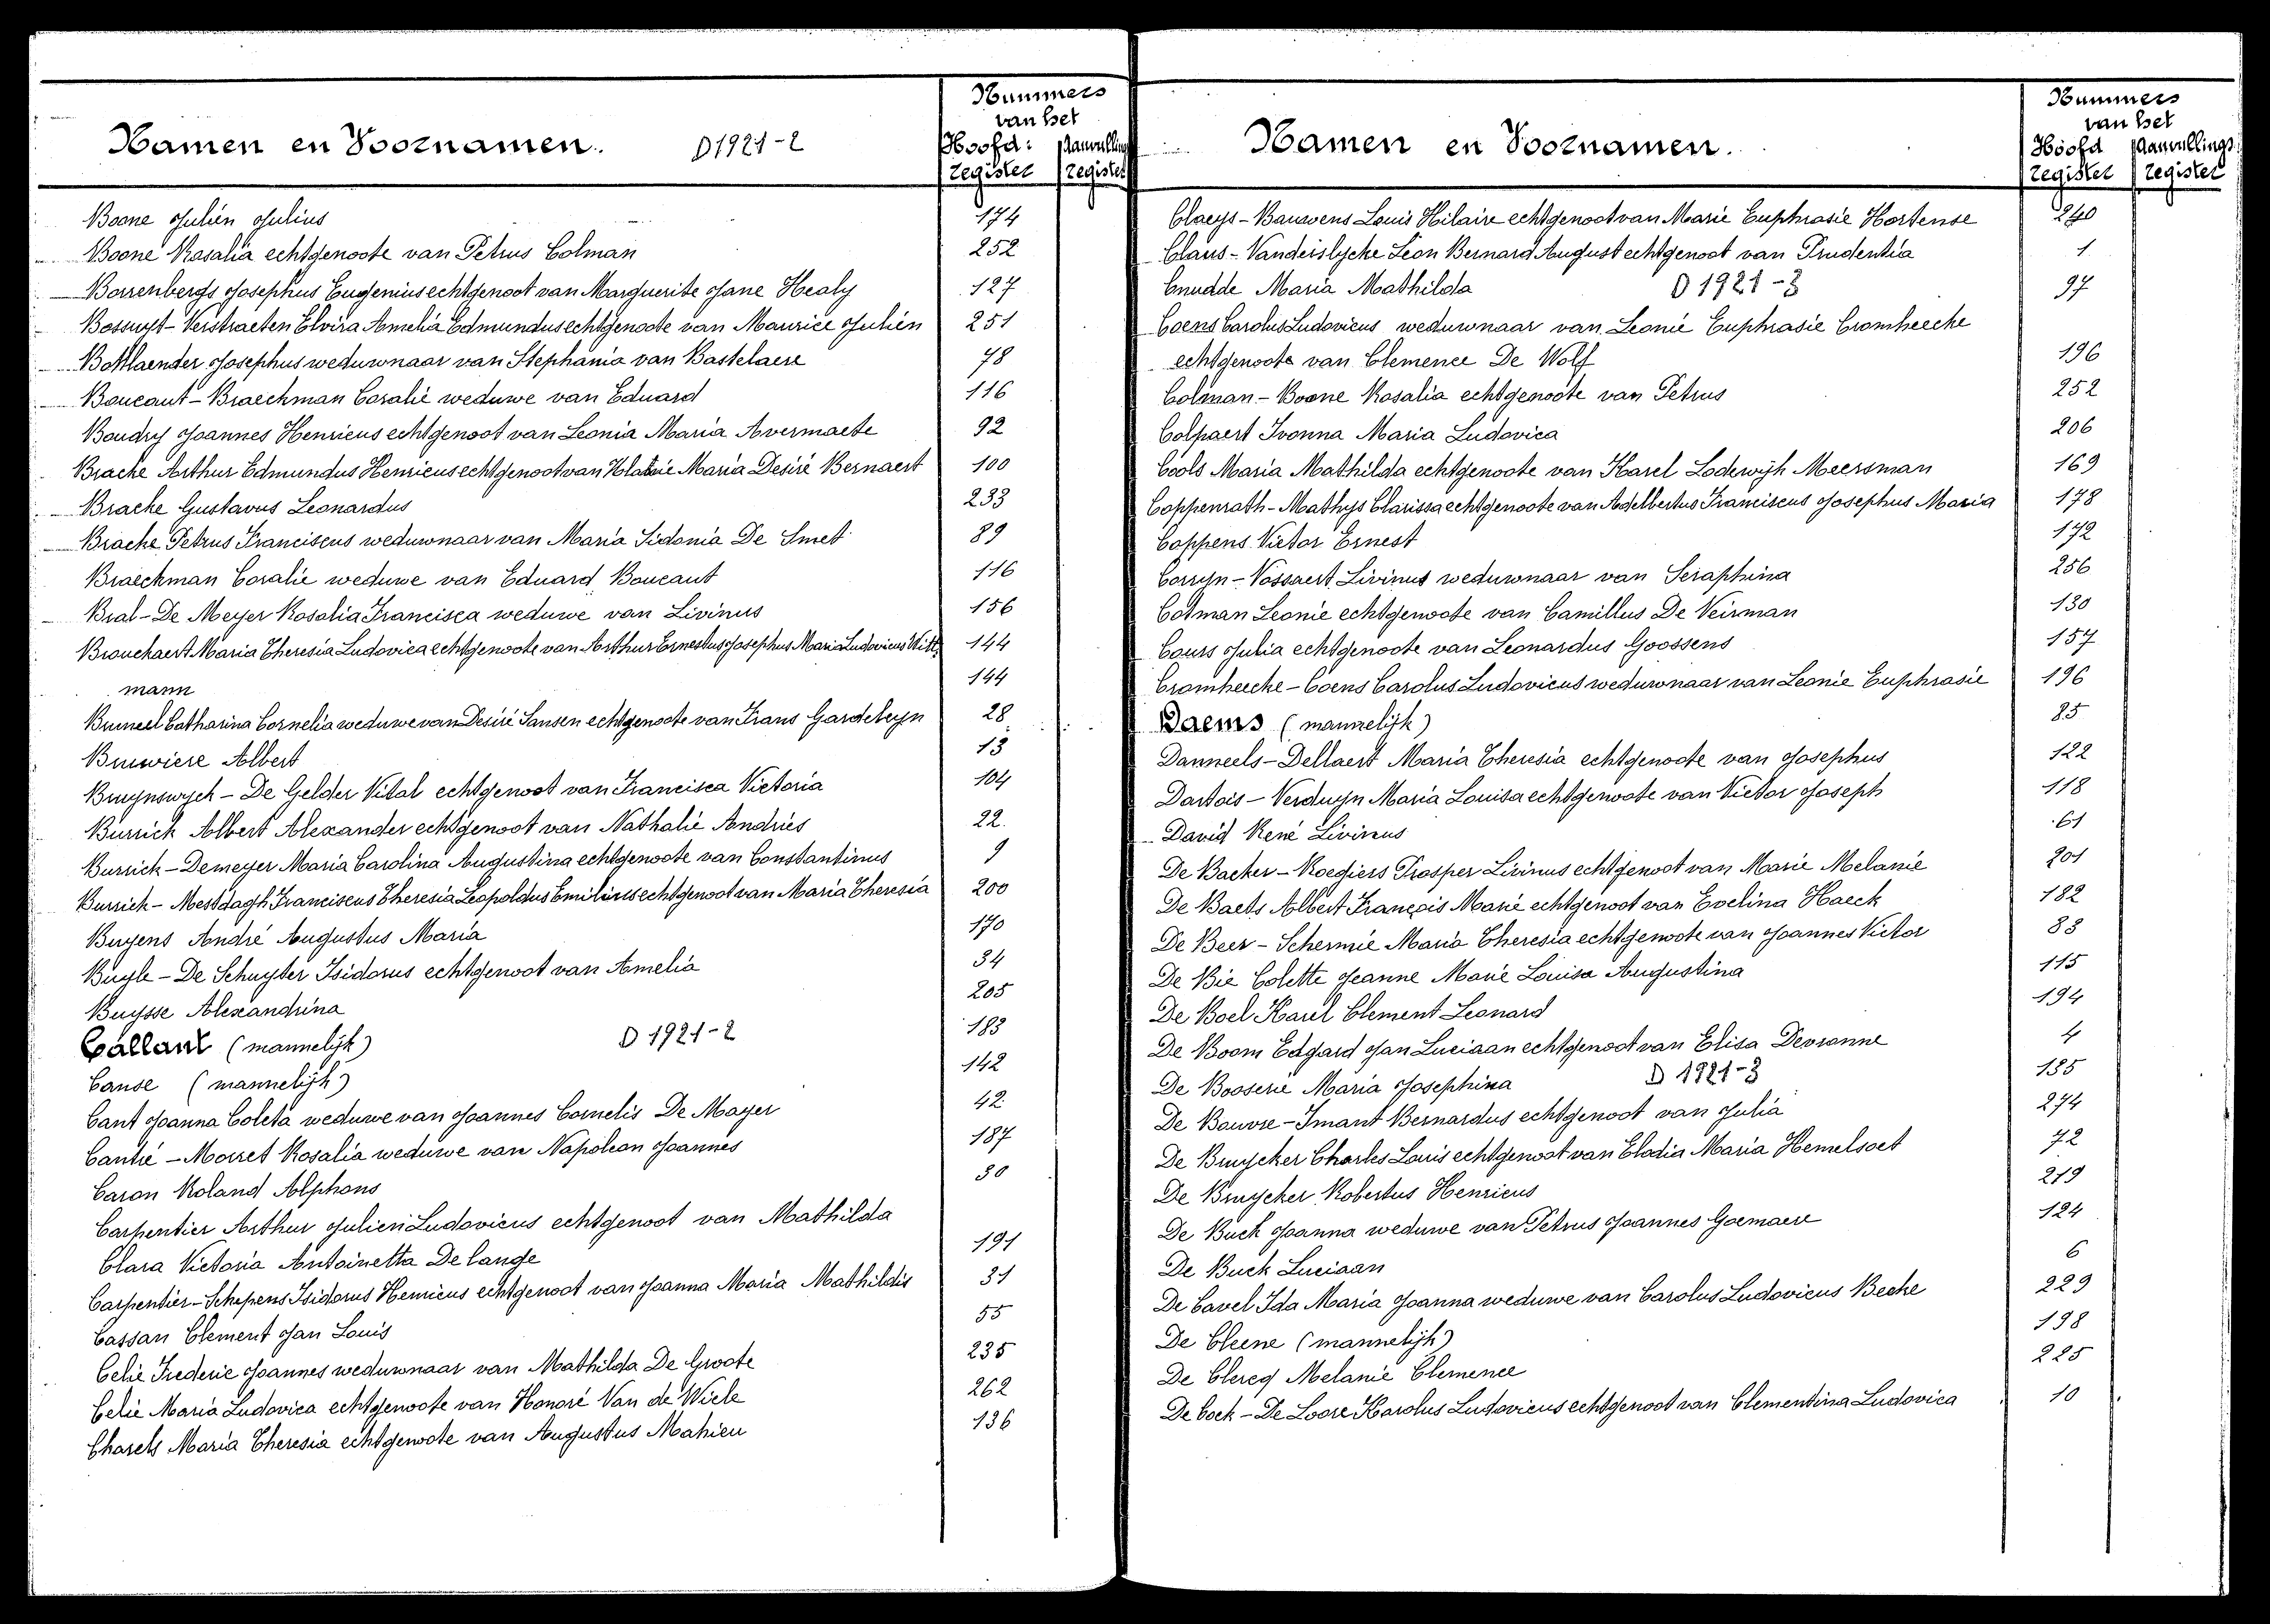 Namen en Voornamen. D1921-2
Nummers
van het
Hoofd: Aanvullings
register register
Boone Julien Julius 174
Boone Rosalia echtgenoote van Petrus Colman 252
Borrenbergs Josephus Eugenius echtgenoot van Marguerite Jane Healy 127
Bossuyt-Verstraeten Elvira Amelia Edmundus echtgenoote van Maurice Julien 251
Bottlaender Josephus weduwnaar van Stephania van Bastelaere 78
Boucaut-Braeckman Coralie weduwe van Eduard 116
Boudry Joannes Henricus echtgenoot van Leonia Maria Avermaete 92
Bracke Arthur Edmundus Henricus echtgenoot van Maria Desiré Bernaert 100
Bracke Gustavus Leonardus 233
Bracke Petrus Franciscus weduwnaar van Maria Sidonia De Smet 89
Braeckman Coralie weduwe van Eduard Boucaut 116
Bral-De Meyer Rosalia Francisca weduwe van Livinus 156
Brouckaert Maria Theresia Ludovica echtgenoote van Arthur Ernestus Josephus Maria Ludovicus Witt= 144
mann 144
Bruneel Catharina Cornelia weduwe van Desiré Sansen echtgenoote van Frans Gardeleyn 28
Bruwiere Albert 13
Bruynswyck - De Gelder Vital echtgenoot van Francisca Victoria 104
Burrick Albert Alexander echtgenoot van Nathalie Andries 22
Burrick-Demeyer Maria Carolina Augustina echtgenoote van Constantinus 9
Burrick-Mestdagh Franciscus Theresia Leopoldus Emilius echtgenoot van Maria Theresia 200
Buyens André Augustus Maria 170
Buyle-De Schuyter Isidorus echtgenoot van Amelia 34
Buysse Alexandrina 205
Callant (mannelijk) D 1921-2 183
Canse (mannelijk) 142
Cant Joanna Coleta weduwe van Joannes Cornelis De Mayer 42
Cantré-Morret Rosalia weduwe van Napoleon Joannes 187
Caron Roland Alphons 30
Carpentier Arthur Julien Ludovicus echtgenoot van Mathilda
Clara Victoria Antoinetta De lange 191
Carpentier-Schepens Isidorus Henricus echtgenoot van Joanna Maria Mathildis 31
Cassan Clement Jan Louis 55
Celie Frederic Joannes weduwnaar van Mathilda De Groote 235
Celie Maria Ludovica echtgenoote van Honoré Van de Wiele 262
Charels Maria Theresia echtgenoote van Augustus Mahieu 136
Namen en Voornamen.
Nummers
van het
Hoofd Aanvullings
register register
Claeys-Bauwens Louis Hilaire echtgenoot van Marie Euphrasie Hortense 240
Claus-Vanderslycke Léon Bernard August echtgenoot van Prudentia 1
Cnudde Maria Mathilda D 1921-3 97
Coens Carolus Ludovicus weduwnaar van Leonie Euphrasie Cromheecke
echtgenoote van Clemence De Wolf 196
Colman-Boone Rosalia echtgenoote van Petrus 252
Colpaert Ivonna Maria Ludovica 206
Cools Maria Mathilda echtgenoote van Karel Lodewijk Meersman 169
Coppenrath-Mathys Clarissa echtgenoote van Adelbertus Franciscus Josephus Maria 178
Coppens Victor Ernest 172
Corryn-Vossaert Livinus weduwnaar van Seraphina 256
Cotman Leonie echtgenoote van Camillus De Veirman 130
Cours Julia echtgenoote van Leonardus Goossens 157
Cromheecke-Coens Carolus Ludovicus weduwnaar van Leonie Euphrasie 196
Daems (mannelijk) 85
Danneels-Dellaert Maria Theresia echtgenoote van Josephus 122
Dartois-Verduyn Maria Louisa echtgenoote van Victor Joseph 118
David René Livinus 61
De Backer-Roegiers Prosper Livinus echtgenoot van Marie Melanie 201
De Baets Albert François Marie echtgenoot van Evelina Haeck 182
De Beer-Schermie Maria Theresia echtgenoote van Joannes Victor 83
De Bie Colette Jeanne Marie Louisa Augustina 115
De Boel Karel Clement Leonard 194
De Boom Edgard Jan Luciaan echtgenoot van Elisa Devronne 4
De Booserie Maria Josephina D 1921-3 135
De Bauvre-Imant Bernardus echtgenoot van Julia 274
De Bruycker Charles Louis echtgenoot van Elodia Maria Hemelsoet 72
De Bruycker Robertus Henricus 219
De Buck Joanna weduwe van Petrus Joannes Goemaere 124
De Buck Luciaan 6
De Cavel Ida Maria Joanna weduwe van Carolus Ludovicus Becke 229
De Cleene (mannelijk) 198
De Clercq Melanie Clemence 225
De Cock-De Loore Karolus Ludovicus echtgenoot van Clementina Ludovica 10